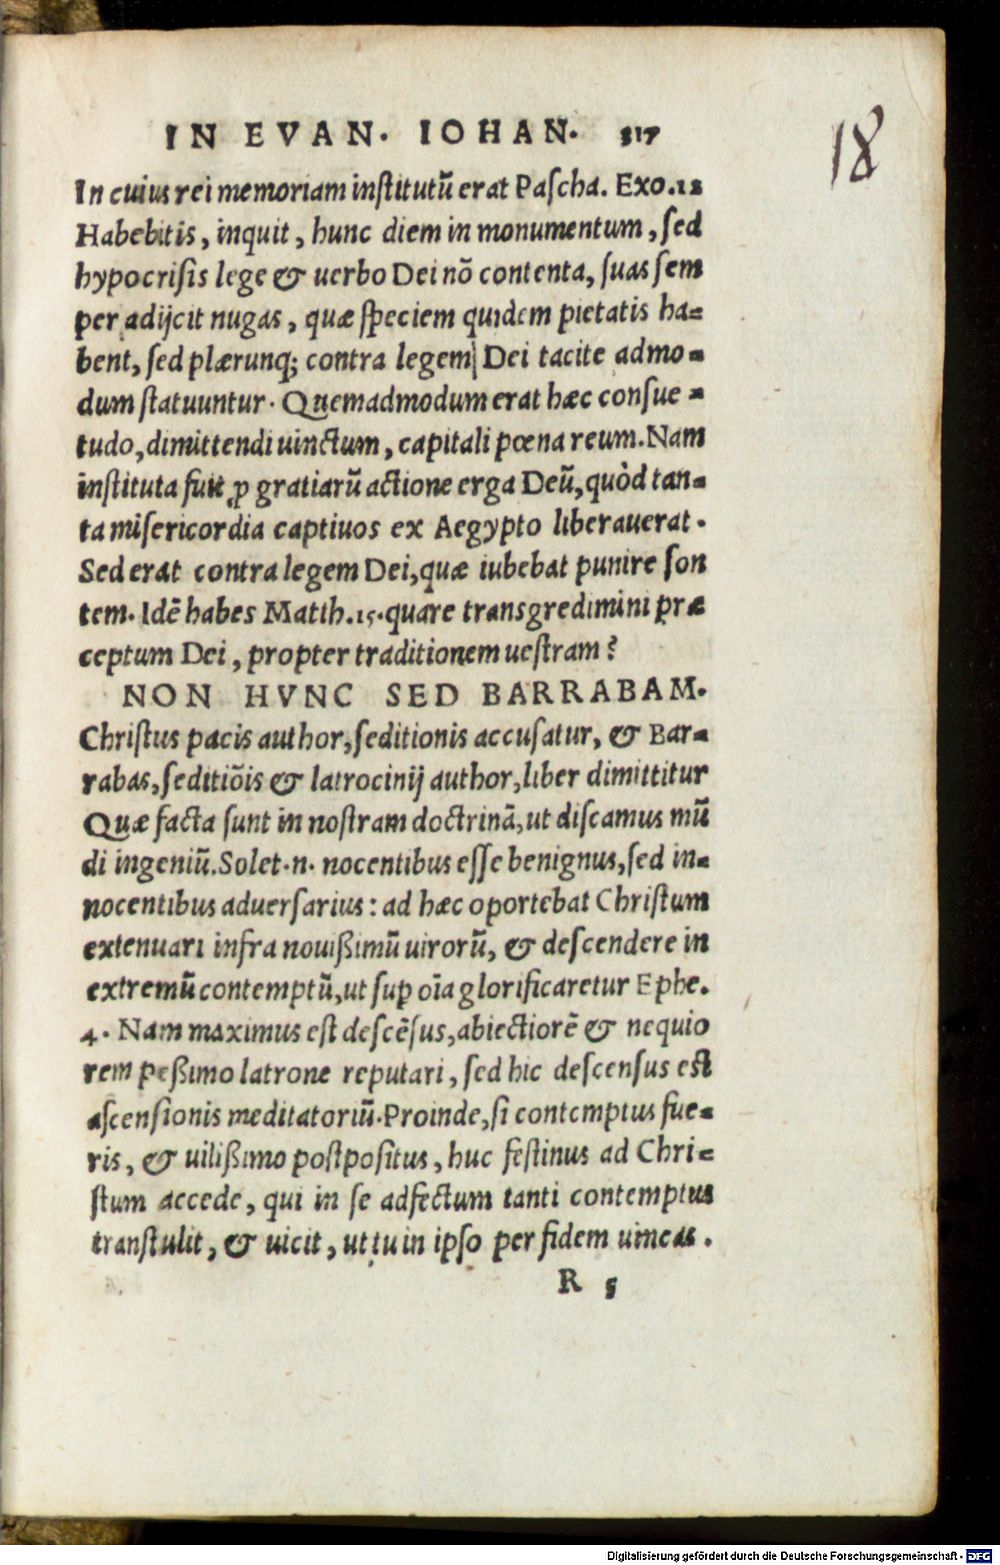 IN EVAN. IOHAN. 517
18
In cuius rei memoriam institutũ erat Pascha. Exo.12
Habebitis, inquit, hunc diem in monumentum, sed
hypocrisis lege & uerbo Dei nõ contenta, suas sem
per adijcit nugas, quæ speciem quidem pietatis ha-
bent, sed plærunq; contra legem Dei tacite admo-
dum statuuntur. Quemadmodum erat hæc consue-
tudo, dimittendi uinctum, capitali pœna reum. Nam
instituta fuit ꝓ gratiarũ actione erga Deũ, quòd tan-
ta misericordia captiuos ex Aegypto liberauerat.
Sed erat contra legem Dei, quæ iubebat punire son
tem. Idẽ habes Matth.15. quare transgredimini præ
ceptum Dei, propter traditionem uestram?
NON HVNC SED BARRABAM.
Christus pacis author, seditionis accusatur, & Bar-
rabas, seditiõis & latrocinij author, liber dimittitur
Quæ facta sunt in nostram doctrinã, ut discamus mũ
di ingeniũ. Solet .n. nocentibus esse benignus, sed in-
nocentibus aduersarius: ad hæc oportebat Christum
extenuari infra nouißimũ uirorũ, & descendere in
extremũ contemptũ, ut sup oĩa glorificaretur Ephe.
4. Nam maximus est descẽsus, abiectiorẽ & nequio
rem peßimo latrone reputari, sed hic descensus est
ascensionis meditatoriũ. Proinde, si contemptus fue-
ris, & uilißimo postpositus, huc festinus ad Chri-
stum accede, qui in se adfectum tanti contemptus
transtulit, & uicit, ut tu in ipso per fidem uincas.
R 5
Digitalisierung gefördert durch die Deutsche Forschungsgemeinschaft - DFG